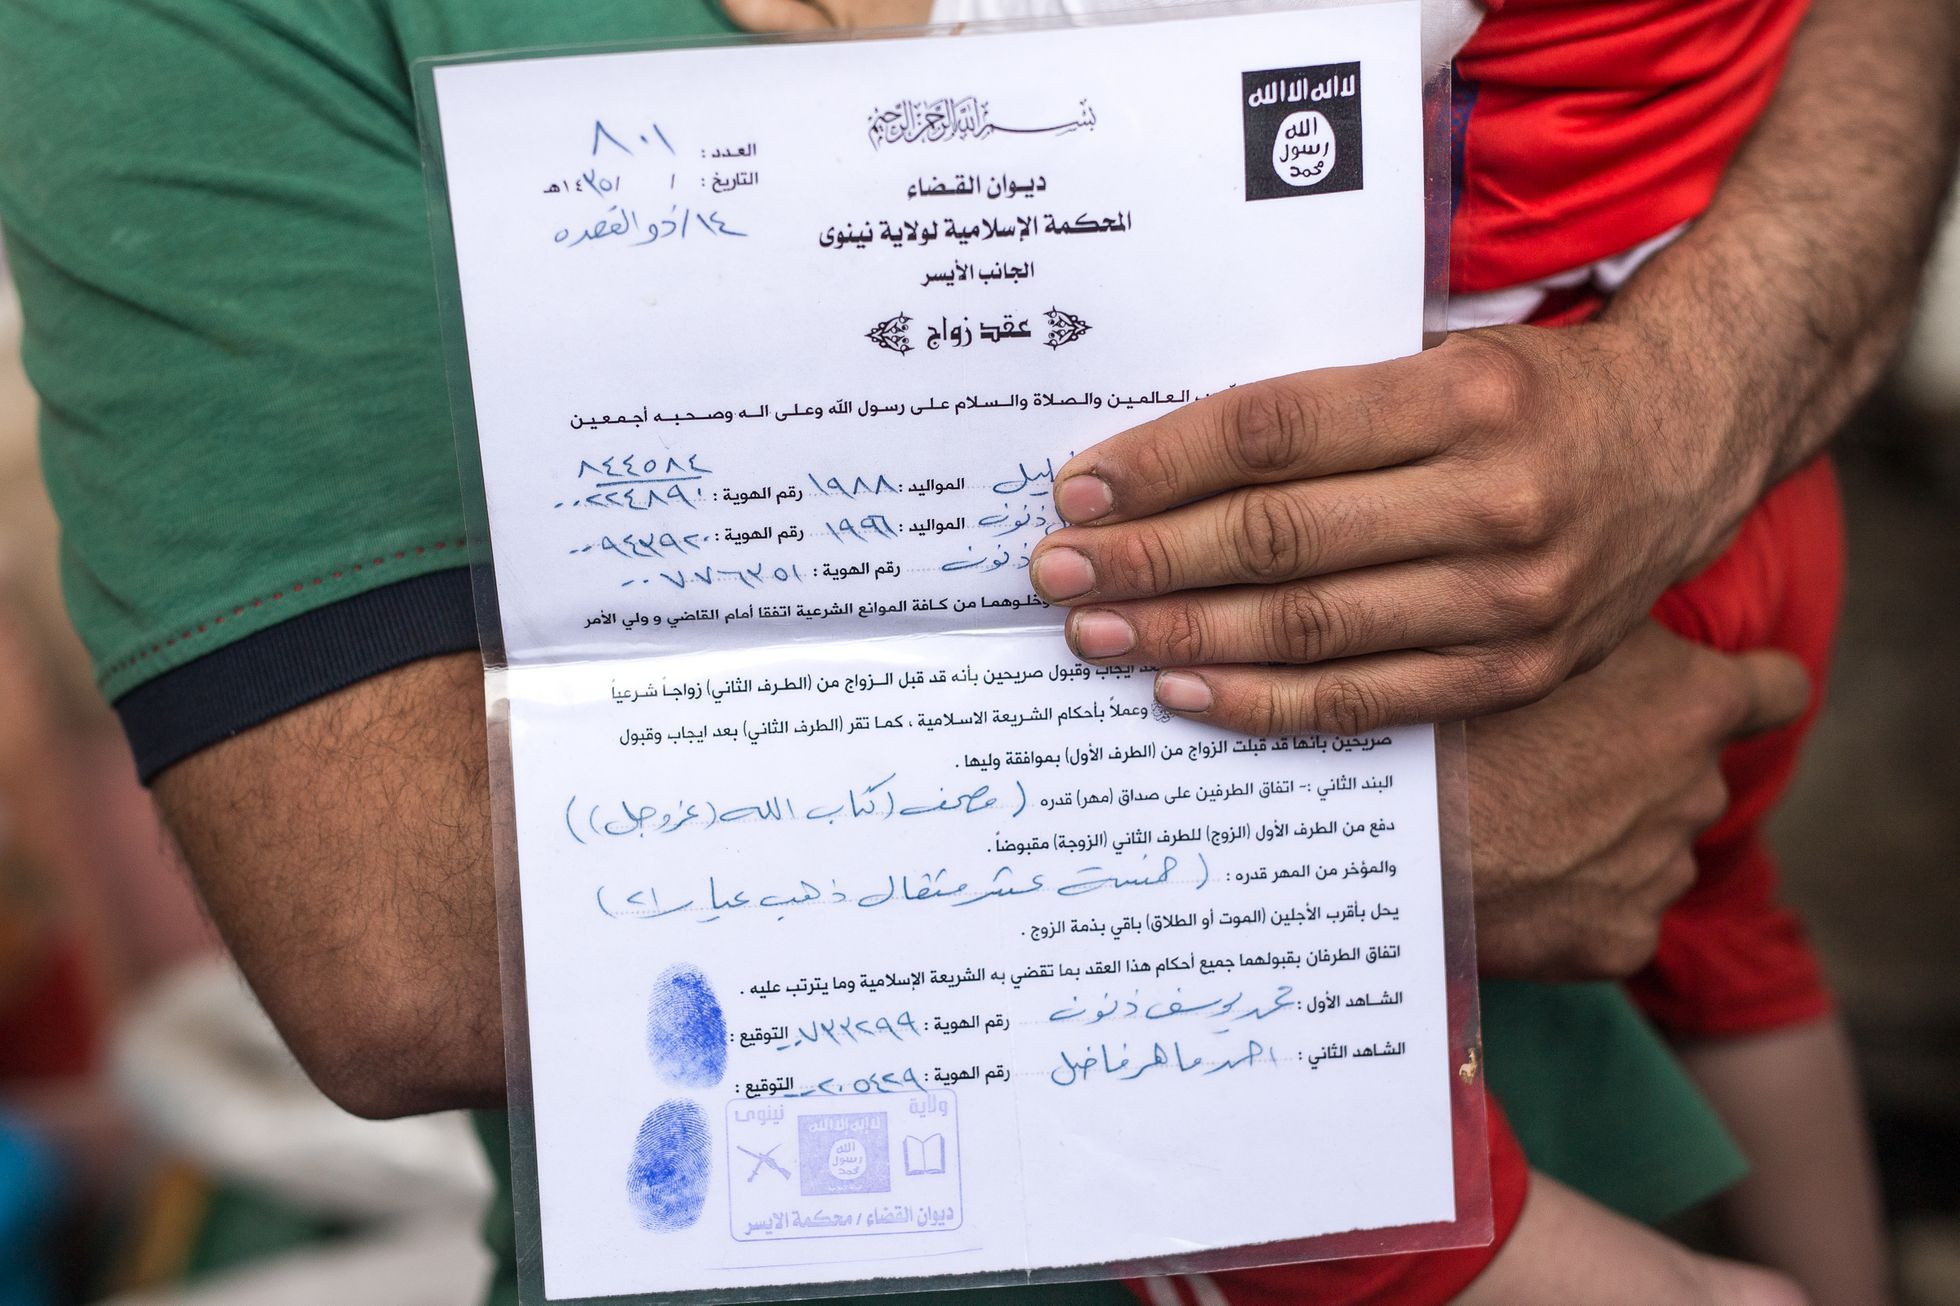 لا اله الا الله
الله
رسول
محمد
بسم الله الرحمن الرحيم
ديوان القضاء
المحكمة الإسلامية لولاية نينوى
الجانب الأيسر
عقد زواج
العدد : ٨٠١
التاريخ : / / ١٤٣٥هـ
١٤/ذو القعده
العالمين والصلاة والسلام على رسول الله وعلى اله وصحبه أجمعين
٨٤٤٥٨٤
المواليد : ١٩٨٨ رقم الهوية :
ذنون المواليد : ١٩٩٦ رقم الهوية : ٠٠٩٤٣٩٢٠
ذنون رقم الهوية : ٠٠٧٧٦٣٥١
وخلوهما من كافة الموانع الشرعية اتفقا أمام القاضي و ولي الأمر
بعد ايجاب وقبول صريحين بأنه قد قبل الزواج من (الطرف الثاني) زواجاً شرعياً
وعملاً بأحكام الشريعة الاسلامية ، كما تقر (الطرف الثاني) بعد ايجاب وقبول
صريحين بأنها قد قبلت الزواج من (الطرف الأول) بموافقة وليها .
البند الثاني :- اتفاق الطرفين على صداق (مهر) قدره ( مصحف (كتاب الله (عزوجل))
دفع من الطرف الأول (الزوج) للطرف الثاني (الزوجة) مقبوضاً .
والمؤخر من المهر قدره : ( خمسة عشر مثقال ذهب عيار ٢١)
يحل بأقرب الأجلين (الموت أو الطلاق) باقي بذمة الزوج .
اتفاق الطرفان بقبولهما جميع أحكام هذا العقد بما تقضي به الشريعة الإسلامية وما يترتب عليه .
الشاهد الأول : محمد يوسف ذنون رقم الهوية : ٠٠٧٣٣٢٩٩ التوقيع :
الشاهد الثاني : احمد ماهر فاضل رقم الهوية : ٠٠٢٠٥٤٢٩ التوقيع :
ولاية نينوى
لا اله الا الله
الله
رسول
محمد
ديوان القضاء / محكمة الايسر